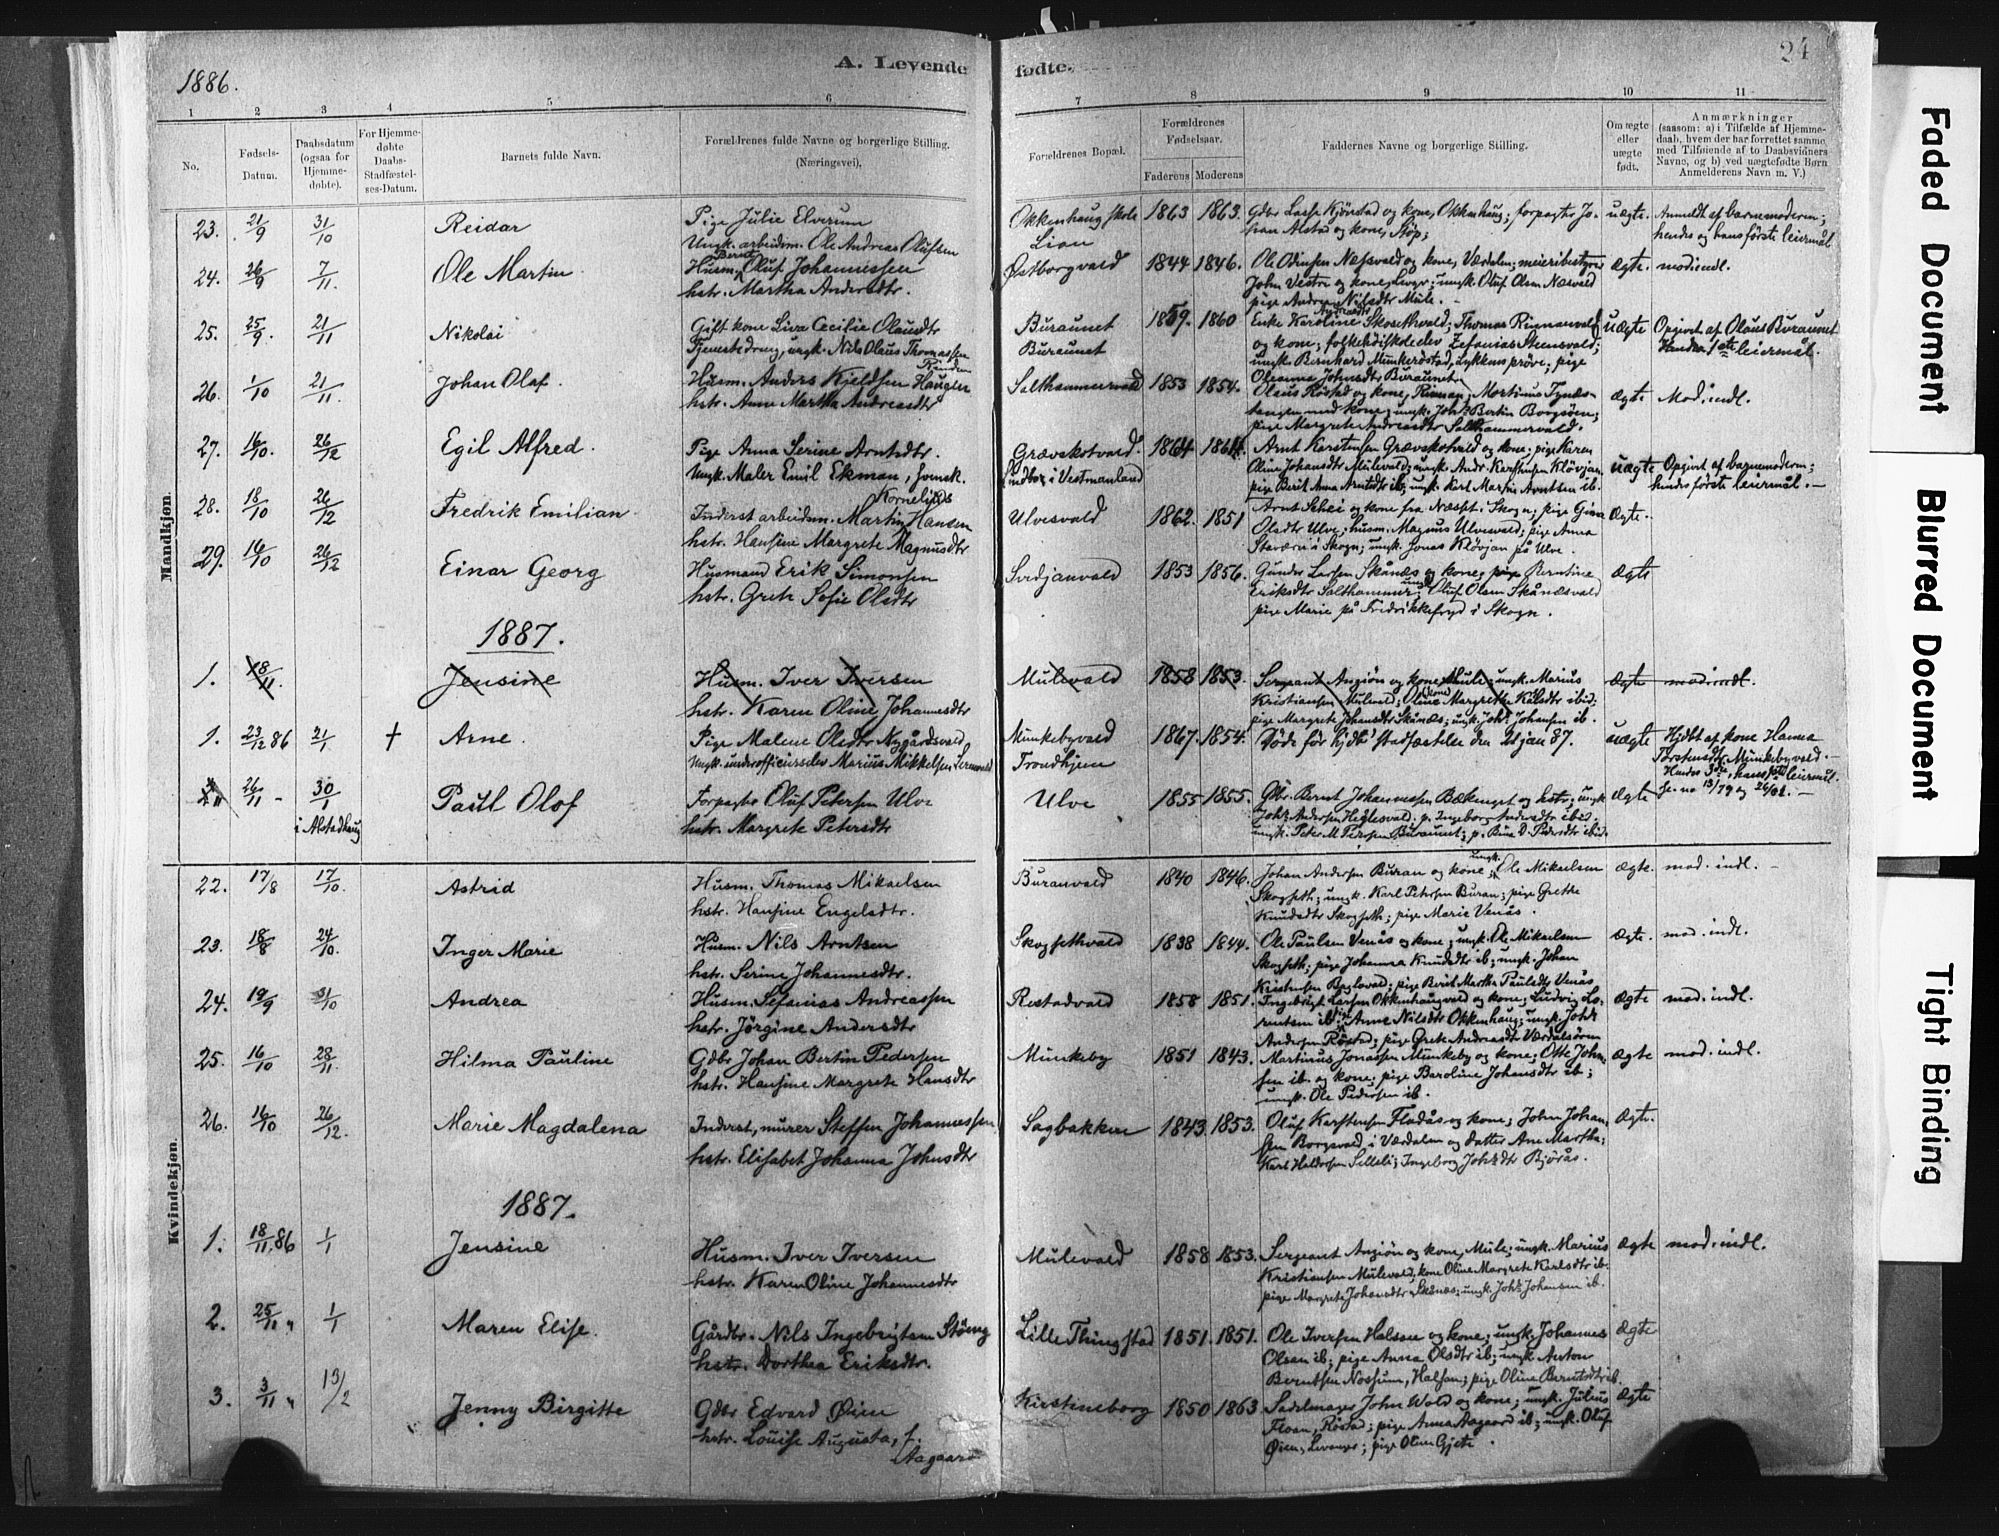 1886.
A. Levende
fødte.
24
1
2
3
4
5
6
7
8
9
10
11
No.
Fødsels-
Datum.
Daabsdatum
(ogsaa for
Hjemme-
døbte).
For Hjemme-
døbte
Daabs-
Stadfæstel-
ses-Datum.
Barnets fulde Navn.
Forældrenes fulde Navne og borgerlige Stilling.
(Næringsvei).
Forældrenes Bopæl.
Forældrenes
Fødselsaar.
Faderens
Moderens
Faddernes Navne og borgerlige Stilling.
Om ægte
eller
uægte
født.
Anmærkninger
(saasom: a) i Tilfælde af Hjemme-
daab, hvem der har forrettet samme,
med Tilføiende af to Daabsvidners
Navne, og b) ved uægtefødte Børn
Anmelderens Navn m. V.)
Mandkjøn.
23. 21/9 31/10 Reidar
Pige Julie Elverum
Ungk. arbeidsm. Ole Andreas Olufsen
Okkenhaug skole
Lian
1863 1863.
Gdbr Lasse Kjönstad og kone, Okkenhaug; forpagter Jo-
han Alstad og kone, Stöp;
uægte.
Anmeldt af barnemoderen;
hendes og hans første leiermål.
24. 26/9 7/11. Ole Martin
Bernt
Husm. Oluf Johannessen
hstr. Martha Andersdtr.
Østborgvald
1844 1846.
Ole Odinsen Næssvald og kone, Værdalen; meieribestyrer
John Vestre og kone, Levgr; ungk. Oluf Olsen Næsvald
pige Andrea Nilsdtr Mule. -
ægte. mod. indl.
25. 25/9. 21/11 Nikolai
Gift kone Liva Cecilie Olausdtr
Tjenestedreng, ungk. Nils Olaus Thomassen
Buraunet
Buraunet
1859. 1860
Enke Karoline Skosethvald; Thomas Rinnanvald
og kone; folkehöiskoleelev Zefanias Steensvald;
ungk. Bernhard Munkeröstad, Lykkens pröve; pige
Oleanna Johnsdtr Buraunet.
uægte
Opgivet af Olaus Buraunet
Hendes 1ste leiermål.
26. 1/10 21/11. Johan Olaf.
Husm. Anders Kjeldsen Haugen
hstr. Anne Martha Andreasdtr
Salthammervald
1853 1854.
Olaus Röstad og kone, Rinnan; Mortinus Tynæs-
tangen med kone; ungk. Johs Bertin Borgsöen;
pige Margrete Andreasdtr Salthammervald.
ægte Mod. indl.
27. 16/10. 26/12 Egil Alfred.
Pige Anna Serine Arntsdtr.
Ungk. Maler Emil Ekman, svensk.
Grævskotvald.
indbr i Vestmanland
1864 1864.
Arnt Karstensen Grævskotvald og kone; pige Karen
Oline Johansdtr Mulevald; ungk. Andr. Karstensen Klövjan.
pige Berit Anna Arntsdtr ib; ungk. Karl Martin Arntsen ib.
uægte Opgivet af barnemoderen;
hendes første leiermål. -
28. 18/10 26/12 Fredrik Emilian
Kornelius
Inderst arbeidsm. Martin Hansen
hstr. Hansine Margrete Magnusdtr
Ulvesvald
1862. 1851
Arnt Schei og kone fra Næsset i Skogn; pige Gina
Olsdtr Ulve; husm. Magnus Ulvesvald; pige Anna
Staværn i Skogn; ungk. Jonas Klövjan på Ulve.
ægte.
29. 16/10 26/12 Einar Georg
Husmand Erik Simonsen
hstr. Grete Sofie Olsdtr
Svedjanvald
1853 1856.
Gunder Larsen Skånæs og kone; pige Berntine
Eriksdtr Salthammer; ungk Oluf Olsen Skånæsvald
pige Marie på Fredrikkefryd i Skogn.
ægte
1887.
1. 18/11. Jensine
Husm. Iver Iversen
hstr. Karen Oline Johannesdtr
Mulevald
1858 1853.
Sergeant Angiön og kone, Mule; ungk. Marius
Kristiansen Mulevald; kone Oline Margrethe Kalsdtr ibid;
pige Margrete Johansdtr Skånæs; ungk. Johs Johansen ib.
ægte mod. indl.
1. 23/12 86 21/1 + Arne.
Pige Malene Olsdtr Nygårdsvald
Ungk. underofficerselev Marius Mikkelsen
Munkebyvald
Trondhjem
1867. 1854.
Döde för hjdb. stadfæstelse den 21 jan 87.
uægte
Hjdbt af kone Hanna
Torstensdtr Munkebyvald. -
Hendes 3die, hans 1ste leiermål.
Se no 13/79 og 26/82. -
26/11 - 30/1
i Alstadhaug
Paul Olof
Forpagter Oluf Petersen Ulve
hstr. Margrete Petersdtr
Ulve
1855 1855.
Gdbr. Bernt Johannessen Bækenget og hstr; ungk
Johs Andersen Heglesvald. p. Ingeborg Andersdtr ibid.
ungk. Peter M. Petersen Buraunet; p. Bina D. Pedersdtr ibid.
ægte
Kvindekjøn.
22. 17/8 17/10. Astrid
Husm. Thomas Mikaelsen
hstr. Hansine Engelsdtr.
Buranvald
1840 1846.
Johan Andersen Buran og kone; ungk. Ole Mikaelsen
Skogseth; ungk. Karl Petersen Buran; pige Grethe
Knudsdtr Skogseth; pige Marie Venås.
ægte. mod. indl. -
23. 18/8 24/10. Inger Marie
Husm. Nils Arntsen
hstr. Serine Johannesdtr.
Skogsethvald
1838 1844.
Ole Paulsen Venås og kone; ungk. Ole Mikaelsen
Skogseth; pige Johanna Knudsdtr ib; ungk. Johan
Kristensen Byglavald; pige Berit Martha Paulsdtr Venås
ægte. mod. indl.
24. 19/9 31/10 Andrea
Husm. Sefanias Andreassen
hstr. Jörgine Andersdtr
Restadvald
1858 1851.
Ingebrigt Larsen Okkenhaugvald og kone; Ludvig Lo-
rentsen ib; pige Anne Nilsdtr Okkenhaug; ungk. Johs
Andersen Röstad; pige Grete Andreasdtr Værdalsören
ægte mod. indl.
25. 16/10 28/11. Hilma Pauline
Gdbr Johan Bertin Pedersen
hstr. Hansine Margrete Hansdtr
Munkeby
1851 1843.
Martinus Jonassen Munkeby og kone; Otte John-
sen ib. og kone; pige Baroline Johansdtr ib;
ungk. Ole Pedersen ib.
ægte mod. indl.
26. 16/10 26/12. Marie Magdalena
Inderst, murer Steffen Johannessen
hstr. Elisabet Johanna Johnsdtr
Sagbakken
1843. 1853.
Oluf Karstensen Flaaås og kone; John Johan-
sen Borgsvald i Værdalen og datter Ane Martha;
Karl Haldorsen Selleli; Ingeborg Johs dtr Bjørås.
ægte.
1887.
1. 18/11. 86 1/1 Jensine
Husm. Iver Iversen
hstr. Karen Oline Johannesdtr
Mulevald
1858 1853.
Sergeant Angiön og kone, Mule; ungk. Marius
Kristiansen Mulevald, kone Oline Margrete Karlsdtr ib.
pige Margrete Johansdtr Skånæs; ungk. Johs Johansen ib.
ægte mod. indl.
2. 25/11 " 1/1 Maren Elise.
Gårdbr. Nils Ingebrigtsen Stöeng
hstr. Dorthea Eriksdtr.
Lille Thingstad
1851. 1851.
Ole Iversen Halsen og kone; ungk. Johannes
Olsen ib; pige Anna Olsdtr ib; ungk. Anton
Berntsen Nossum, Halsan; pige Oline Berntsdtr ib.
ægte
3. 3/11 " 13/2 Jenny Birgitte
Gdbr Edvard Øien
hstr. Louise Augusta, f.
Aagaard
Kirstineborg
1850 1863
Sadelmager John Wold og kone; ungk. Julius
Floan, Röstad; pige Anna Aagaard ib; ungk. Oluf
Øien, Levanger; pige Oline Gjete.
ægte
Faded Document
Blurred Document
Tight Binding